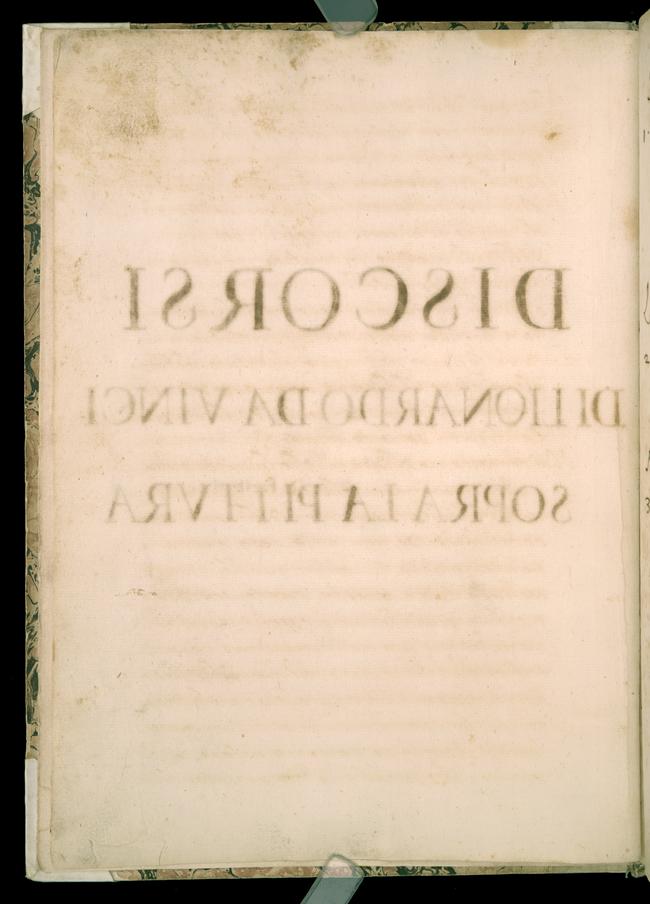 DISCORSI
DI LIONARDO DA VINCI
SOPRA LA PITTVRA